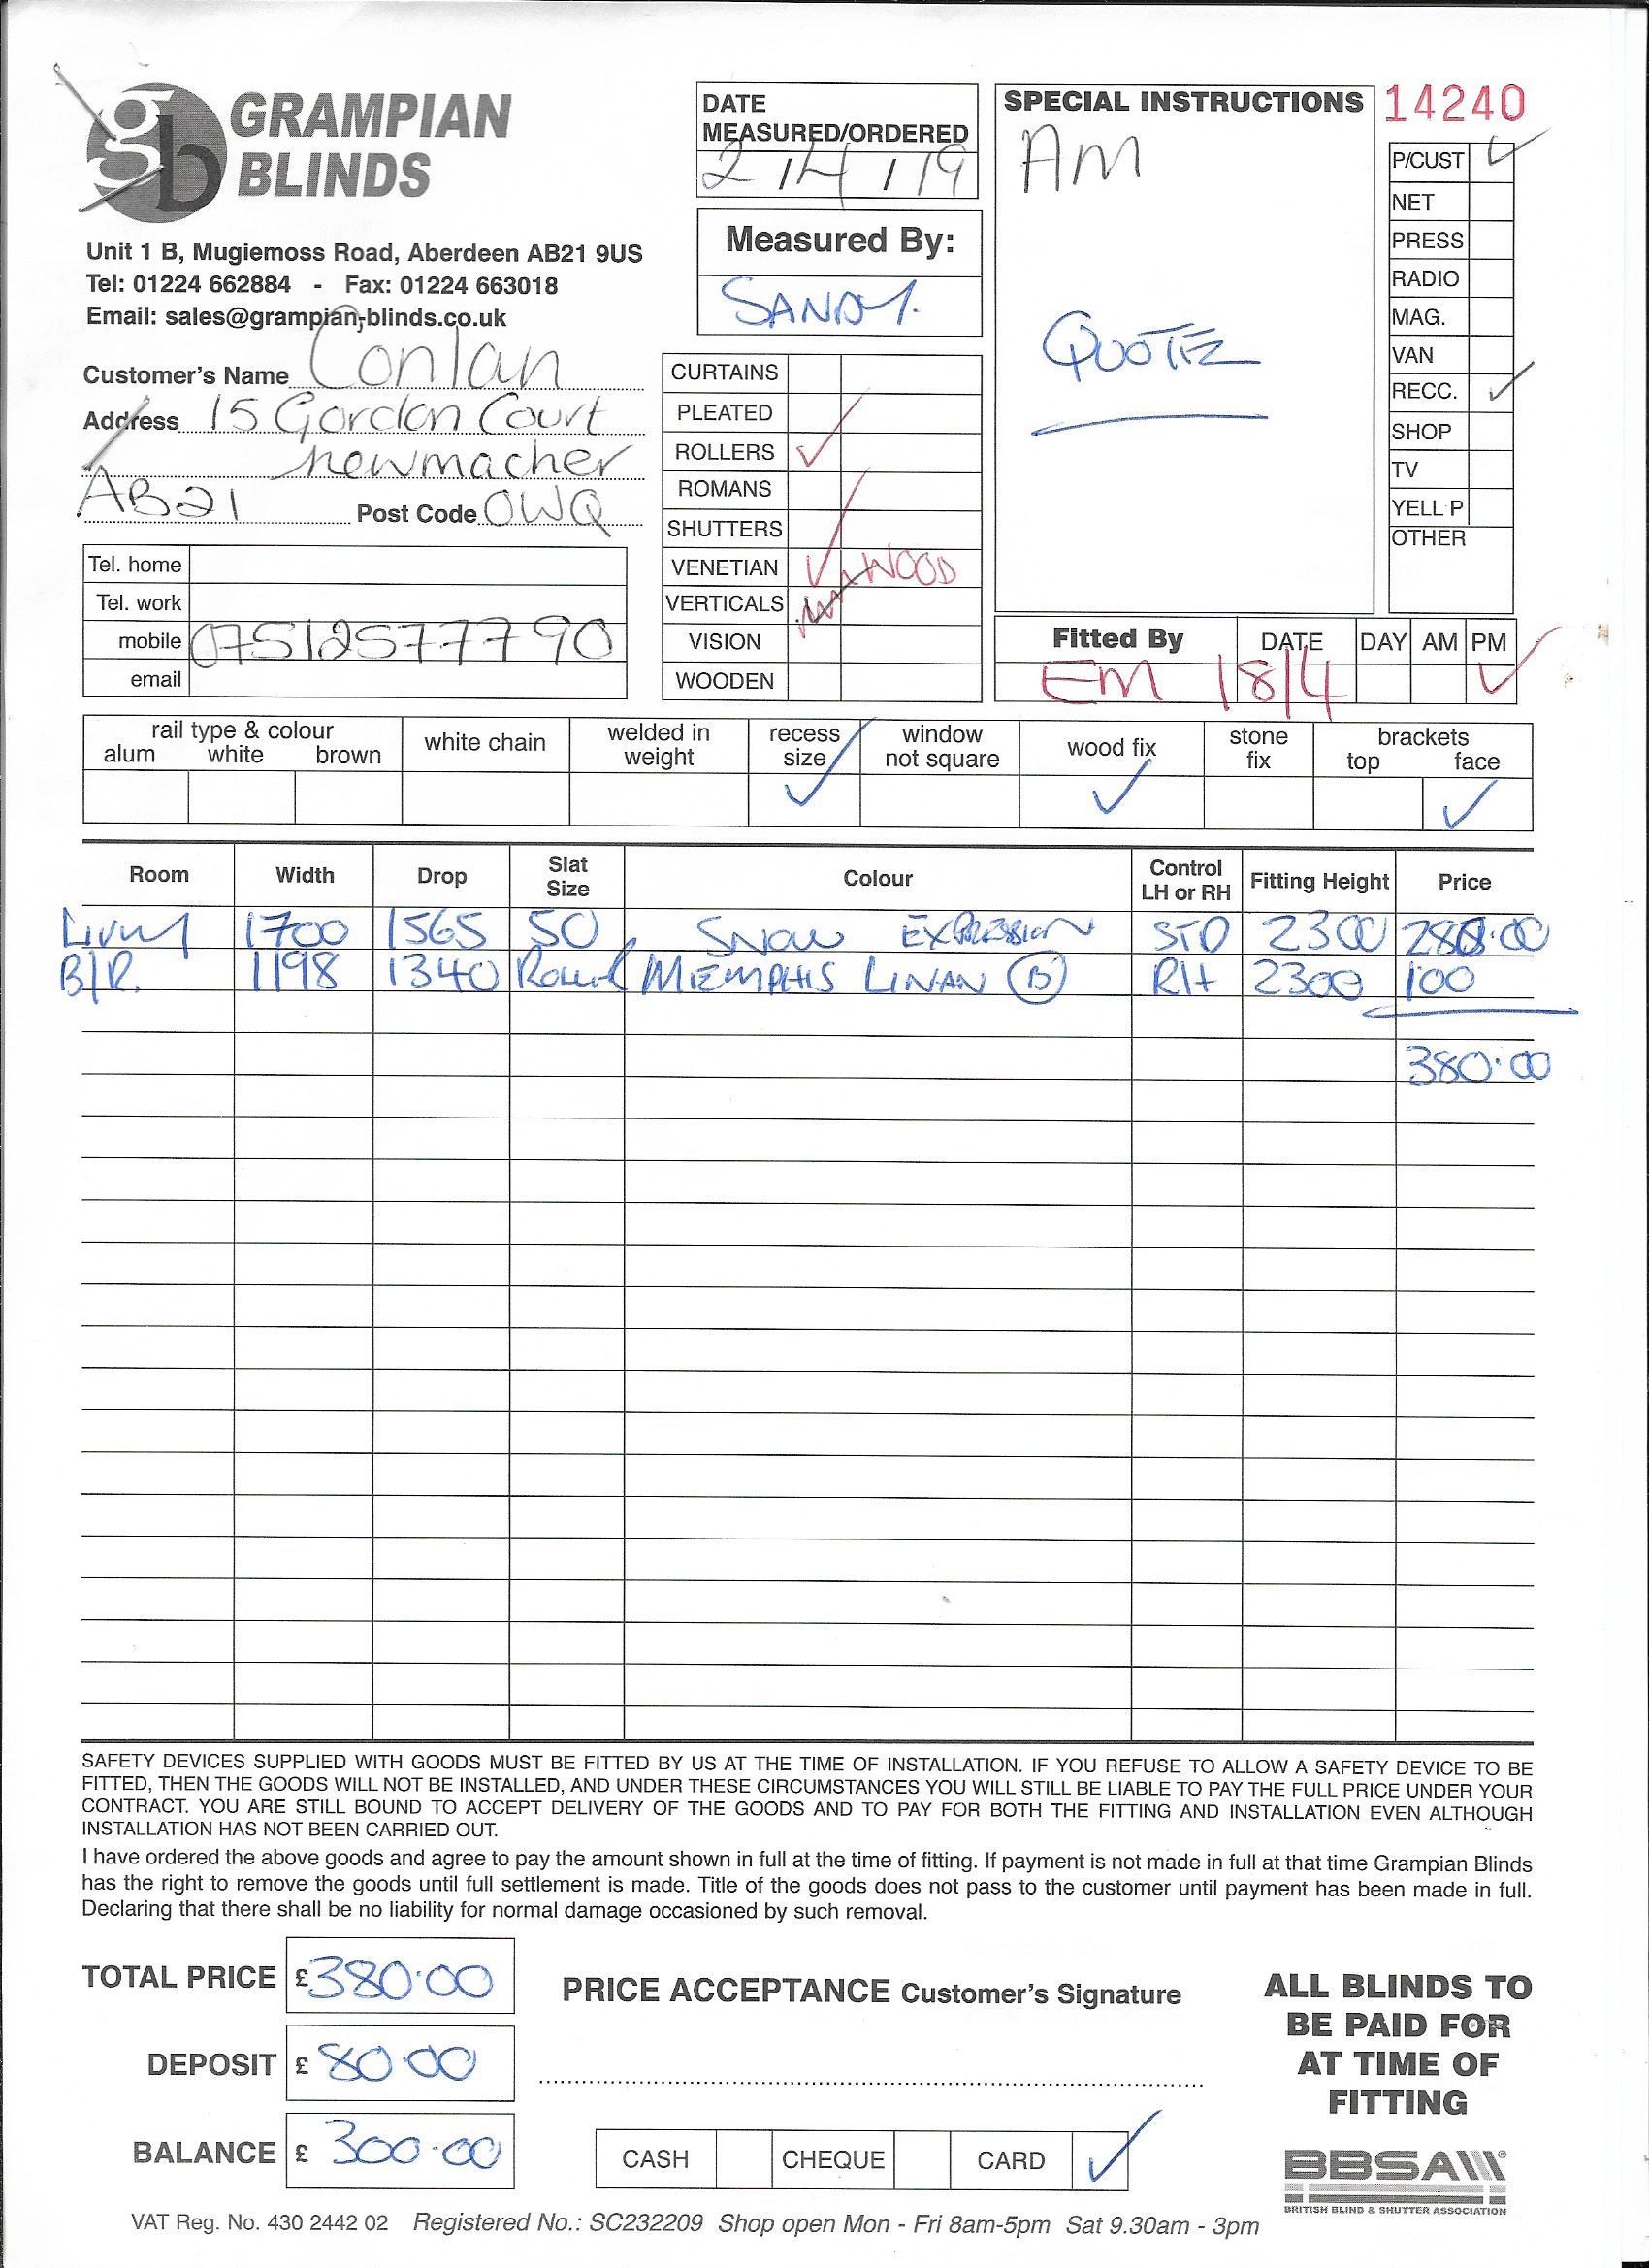 GRAMPIAN
BLINDS
gb
Unit 1 B, Mugiemoss Road, Aberdeen AB21 9US
Tel: 01224 662884 - Fax: 01224 663018
Email: sales@grampian-blinds.co.uk
Customer's Name Conlan
Address 15 Gordon Court
Newmacher
AB21 Post Code 0WQ
Tel. home
Tel. work
mobile 07512577790
email
DATE
MEASURED/ORDERED
2/4/19
Measured By:
SANDY.
CURTAINS
PLEATED
ROLLERS ✓
ROMANS
SHUTTERS
VENETIAN ✓ WOOD
VERTICALS
VISION
WOODEN
SPECIAL INSTRUCTIONS
AM
QUOTE
14240
P/CUST ✓
NET
PRESS
RADIO
MAG.
VAN
RECC. ✓
SHOP
TV
YELL P
OTHER
Fitted By DATE DAY AM PM
EM 18/4 ✓
rail type & colour
alum white brown
white chain
welded in
weight
recess
size ✓
window
not square
wood fix ✓
stone
fix
brackets
top face ✓
Room Width Drop Slat Size Colour Control LH or RH Fitting Height Price
Living 1700 1565 50 SNOW EXPRESSION STD 2300 280.00
B/R. 1198 1340 Roller MEMPHIS LINAN (B) RH 2300 100
380.00
SAFETY DEVICES SUPPLIED WITH GOODS MUST BE FITTED BY US AT THE TIME OF INSTALLATION. IF YOU REFUSE TO ALLOW A SAFETY DEVICE TO BE
FITTED, THEN THE GOODS WILL NOT BE INSTALLED, AND UNDER THESE CIRCUMSTANCES YOU WILL STILL BE LIABLE TO PAY THE FULL PRICE UNDER YOUR
CONTRACT. YOU ARE STILL BOUND TO ACCEPT DELIVERY OF THE GOODS AND TO PAY FOR BOTH THE FITTING AND INSTALLATION EVEN ALTHOUGH
INSTALLATION HAS NOT BEEN CARRIED OUT.
I have ordered the above goods and agree to pay the amount shown in full at the time of fitting. If payment is not made in full at that time Grampian Blinds
has the right to remove the goods until full settlement is made. Title of the goods does not pass to the customer until payment has been made in full.
Declaring that there shall be no liability for normal damage occasioned by such removal.
TOTAL PRICE £380.00
DEPOSIT £80.00
BALANCE £300.00
PRICE ACCEPTANCE Customer's Signature
CASH CHEQUE CARD ✓
ALL BLINDS TO
BE PAID FOR
AT TIME OF
FITTING
BBSA
BRITISH BLIND & SHUTTER ASSOCIATION
VAT Reg. No. 430 2442 02 Registered No.: SC232209 Shop open Mon - Fri 8am-5pm Sat 9.30am - 3pm